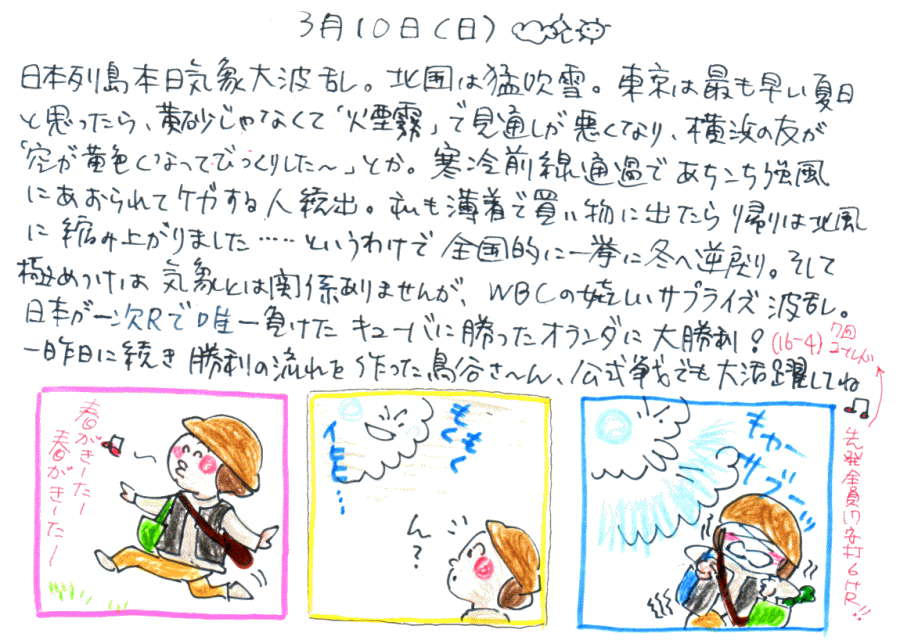 3月10日(日)
日本列島本日気象大波乱。北国は猛吹雪。東京は最も早い夏日
と思ったら、黄砂じゃなくて「火煙霧」で見通しが悪くなり、横浜の友が
「空が黄色くなってびっくりした〜」とか。寒冷前線通過であちこち強風
にあおられてケガする人続出。私も薄着で買い物に出たら帰りは北風
に縮み上がりました……というわけで全国的に一挙に冬へ逆戻り。そして
極めつけは気象とは関係ありませんが、WBCの嬉しいサプライズ波乱。
日本が一次Rで唯一負けたキューバに勝ったオランダに大勝利?
(16-4) 7回コールド
一昨日に続き勝利の流れを作った鳥谷さ〜ん、公式戦でも大活躍してね♫
先発全員17安打6HR!!
春がきーたー
春がきーたー
もくもく
イヒヒ…
ん?
もわー
サブーッ